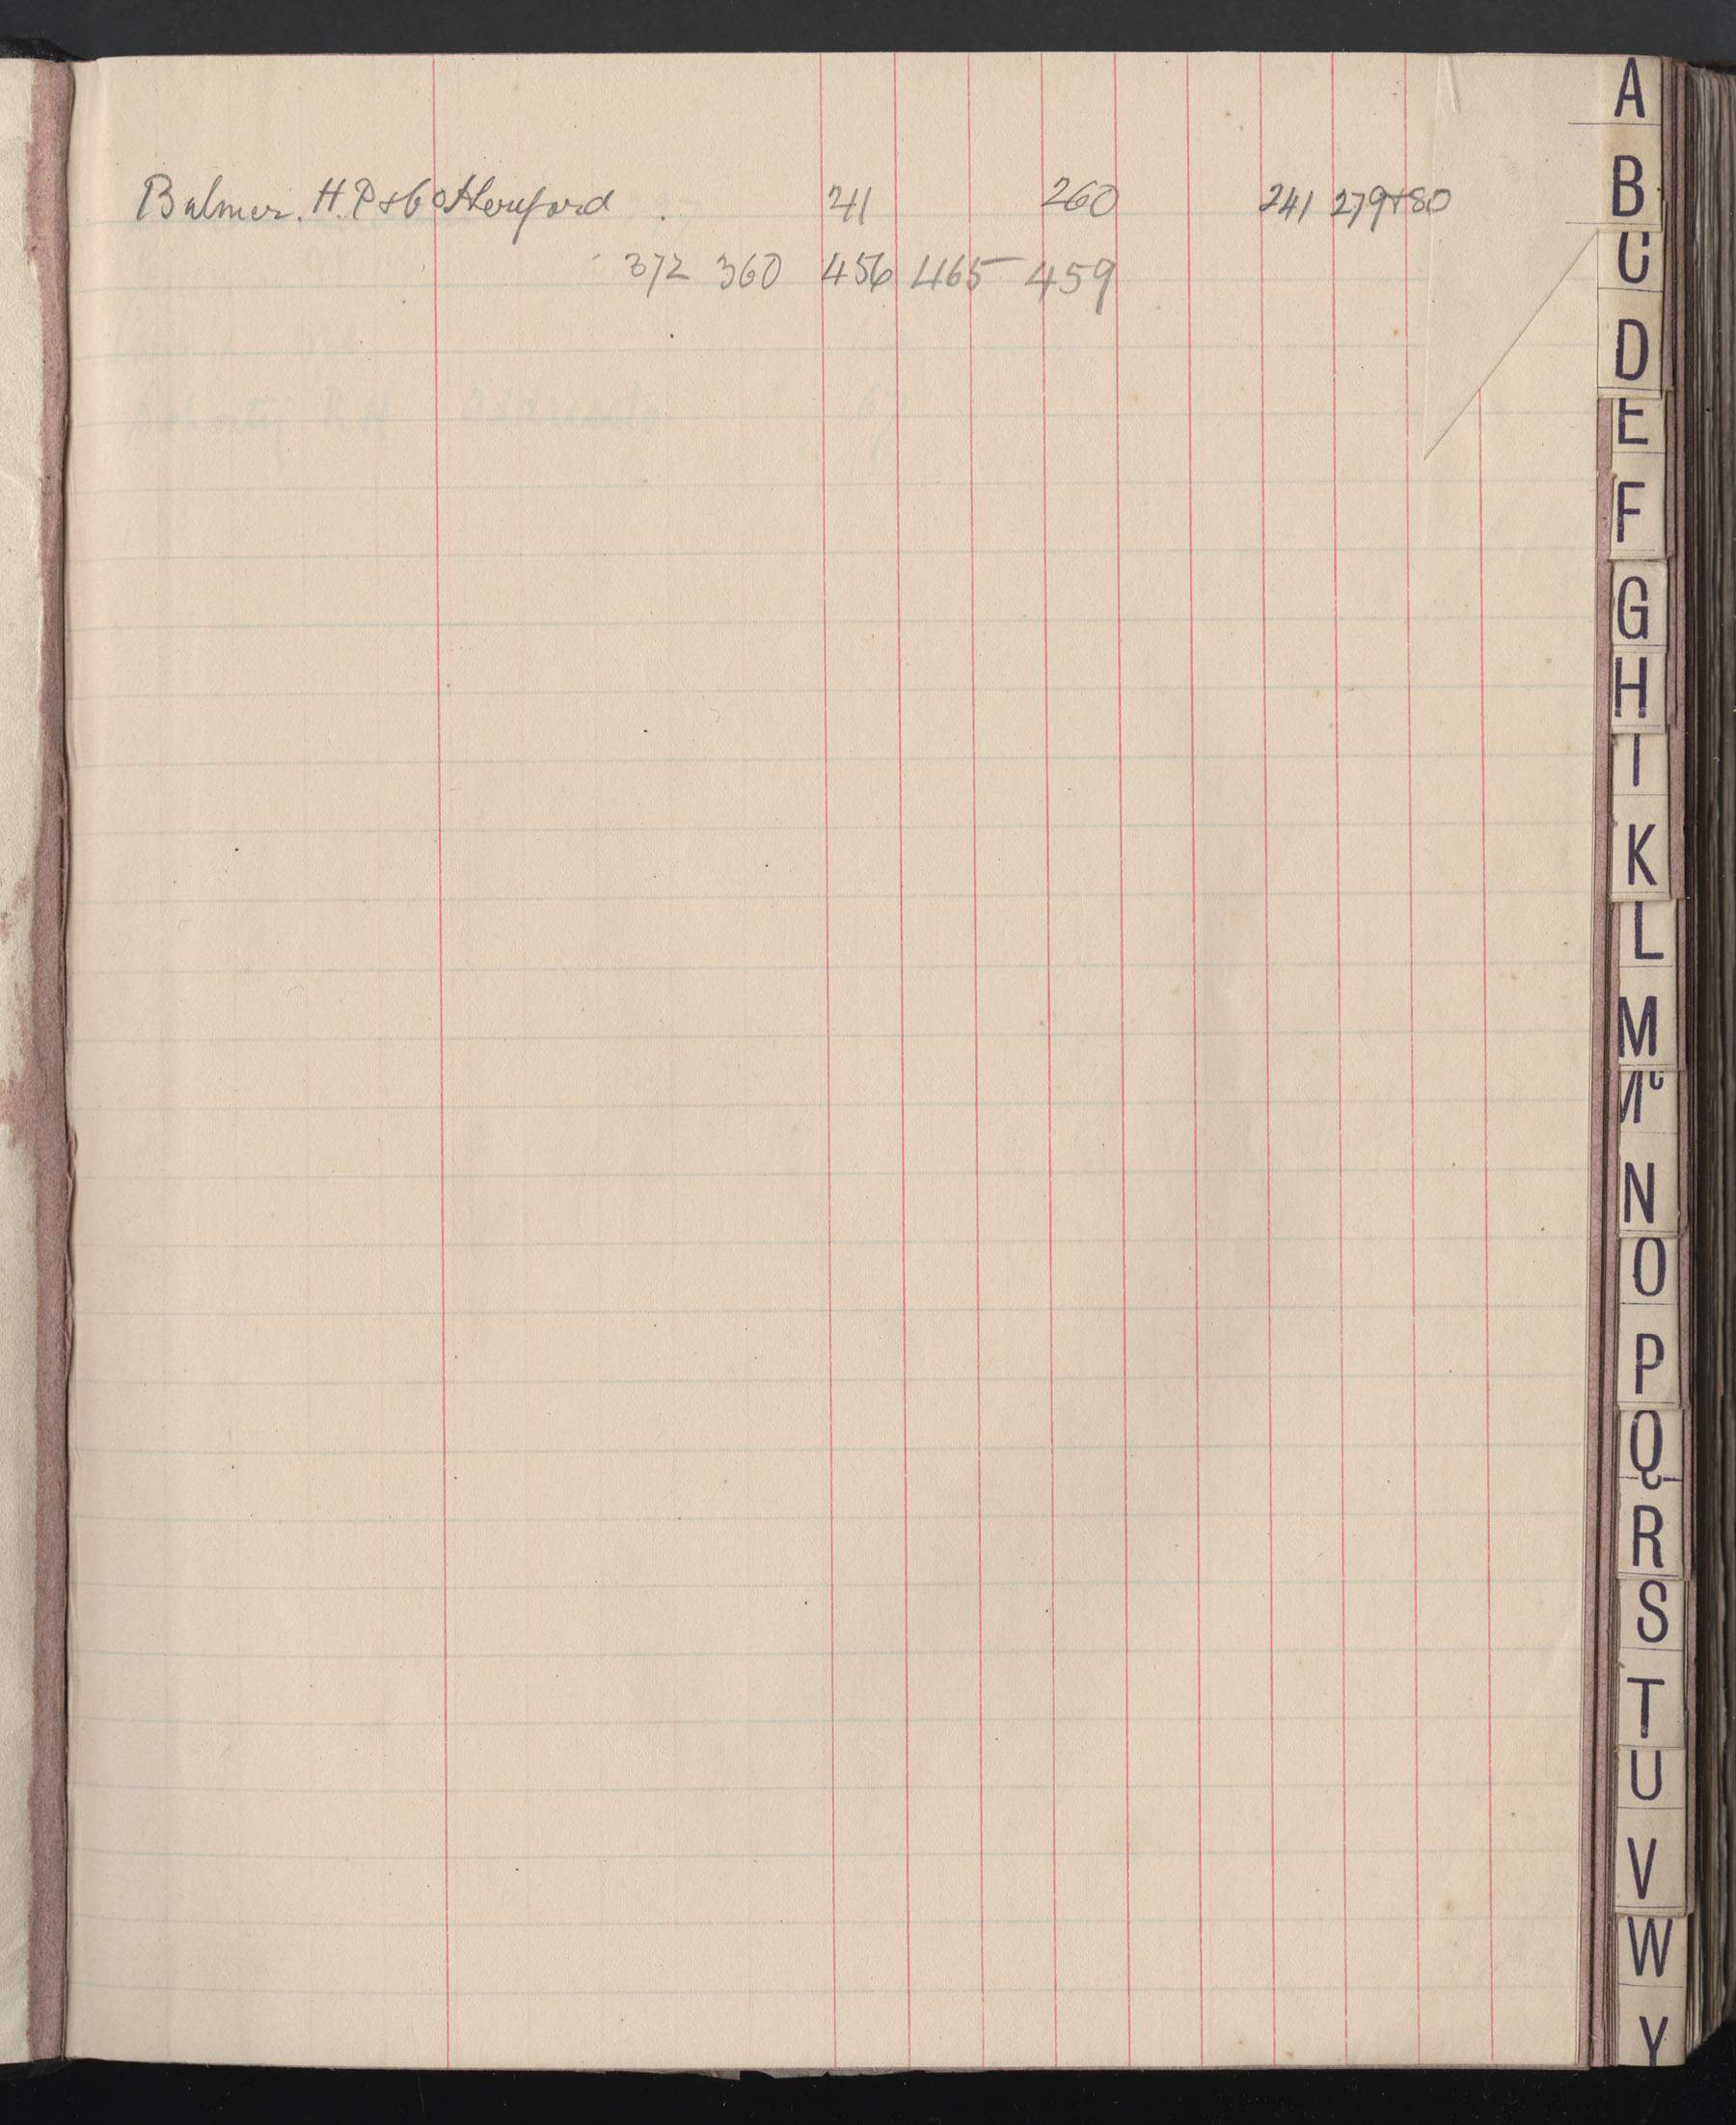 Bulmer. H. P & Co Hereford 241 260 241 279+80
372 360 456 465 459
A
B
C
D
E
F
G
H
I
K
L
M
Mc
N
O
P
Q
R
S
T
U
V
W
Y